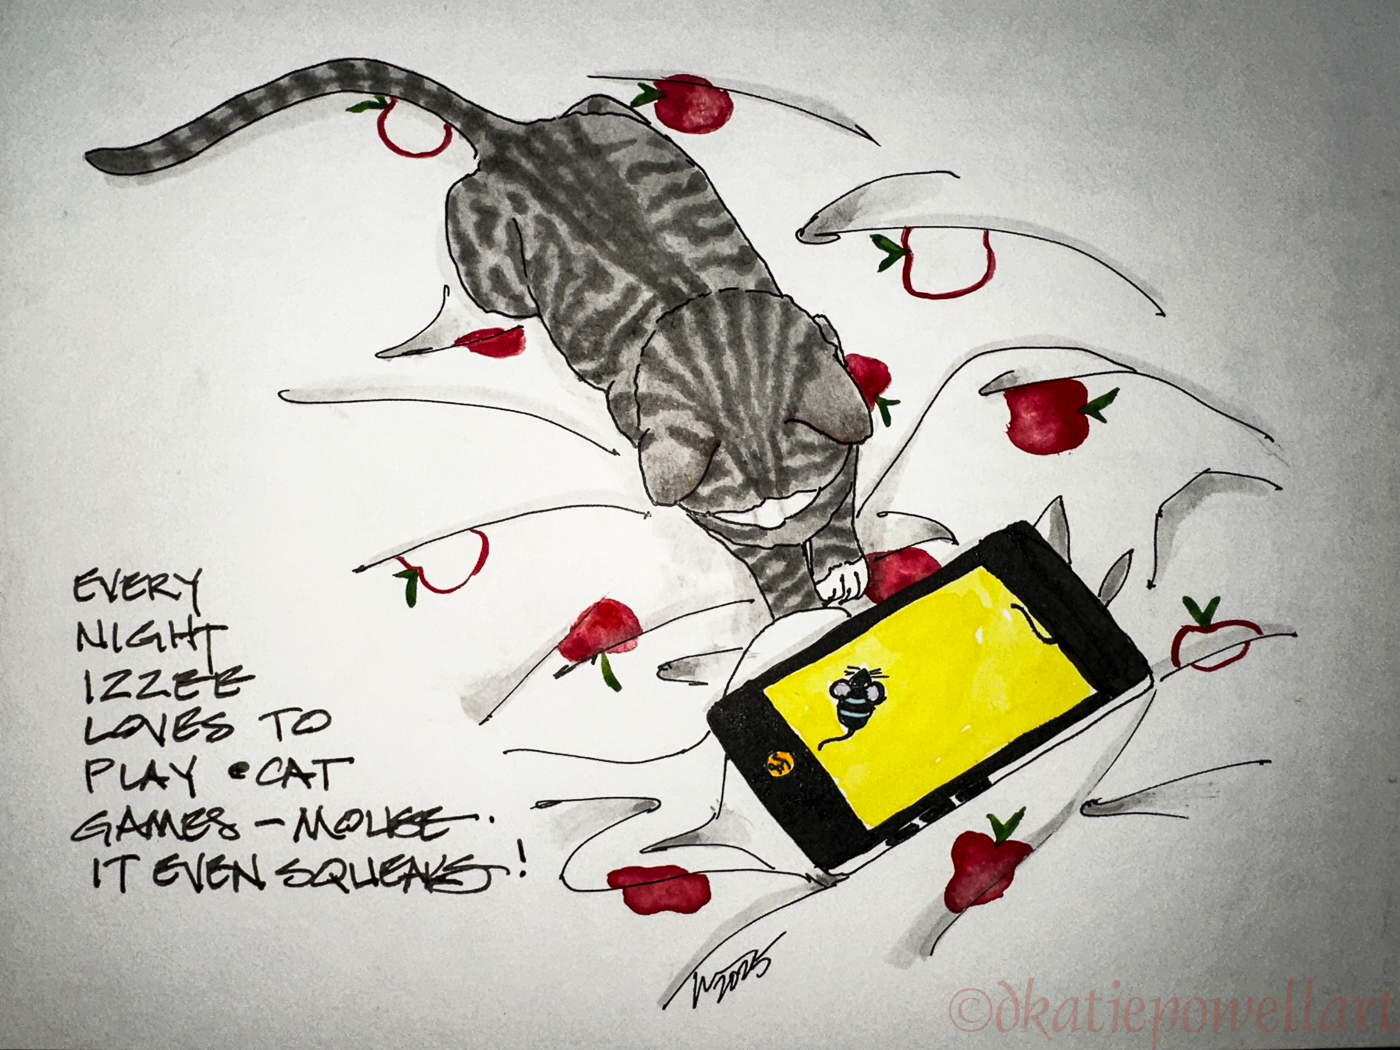 EVERY
NIGHT
IZZEE
LOVES TO
PLAY @CAT
GAMES – MOUSE.
IT EVEN SQUEAKS!
2025
©dkatiepowellart